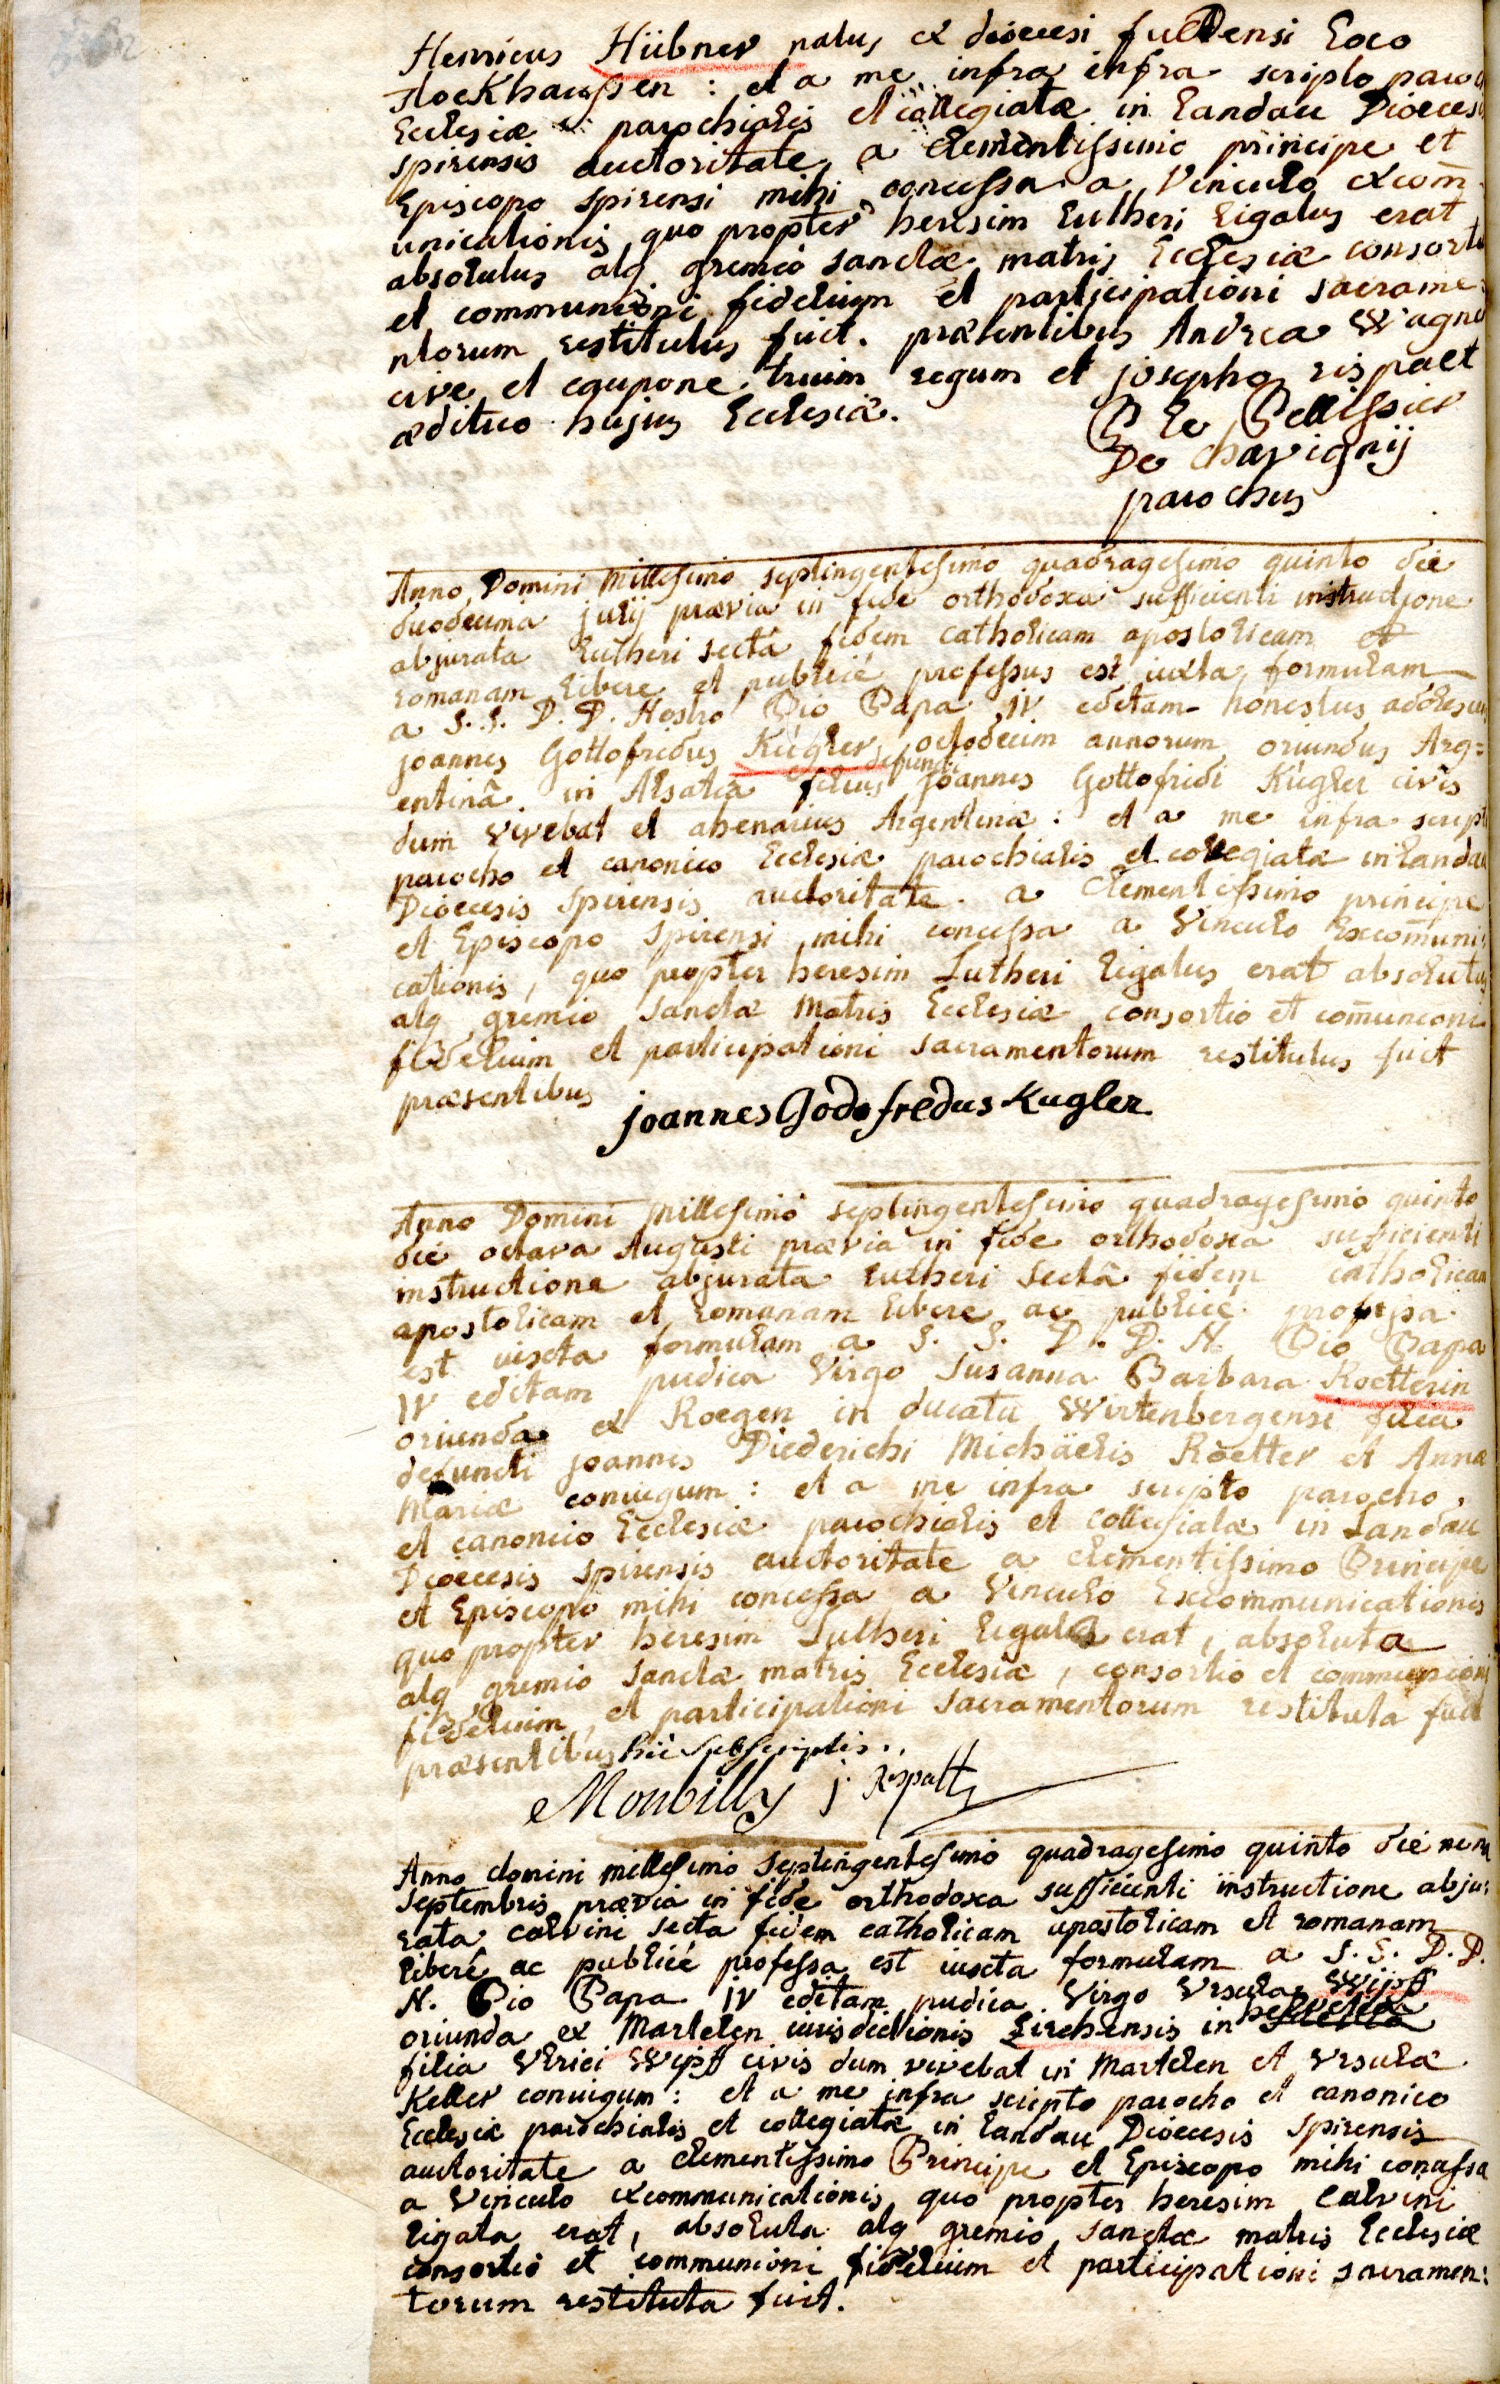 Henricus Hübner natus ex dioecesi fuldensi Loco
stockhausen : et a me infra infra scripto paroch
Ecclesiæ parochialis et collegiatæ in Landau Dioecesis
spirensis auctoritate, a clementissimo principe et
Episcopo spirensi mihi concessa a Vinculo excom̄
unicationis, quo propter heresim Lutheri Ligatus erat
absolutus atq gremio sanctæ matris Ecclesiæ consortio
et communioni fidelium et participationi sacrame:
ntorum restitutus fuit. præsentibus Andrea Wagner
cive et caupone trium regum et josepho rispaelt
ædituo hujus Ecclesiæ.
P Le Pellissier
De chavignij
parochus
Anno Domini Millesimo septingentesimo quadragesimo quinto die
duodecima julij prævia in fide orthodoxa sufficienti instructione
abjurata Lutheri sectâ fidem catholicam apostolicam et
romanam Libere et publicè professus est iuxta formulam
a S.S. D. D. Nostro Pio Papa IV editam honestus adolescens
joannes Gottofridus Kügler, octodecim annorum oriundus Arg=
entinâ in Alsatia filius defuncti Joannis Gottofridi Kügler civis
dum vivebat et ahenarius Argentinæ : et a me infra script
parocho et canonico Ecclesiæ parochialis et collegiatæ in Landau
Dioecesis Spirensis auctoritate a Clementissimo principe
et Episcopo Spirensi mihi concessa a Vinculo Excom̄uni:
cationis, quo propter heresim Lutheri Ligatus erat absolutus
atq gremio Sanctæ Matris Ecclesiæ consortio et com̄unioni
fidelium et participationi sacramentorum restitutus fuit
præsentibus
joannes Godofredus Kugler
Anno Domini Millesimo septingentesimo quadragesimo quinto
die octava Augusti prævia in fide orthodoxa sufficienti
instructione abjurata Lutheri Sectâ fidem catholicam
apostolicam et Romanam Libere ac publicè professa
est iuxta formulam a S. S. D. D. N. Pio Papa
IV editam pudica Virgo Susanna Barbara Roetterin
oriunda ex Roegen in ducatu Wirtenbergensi filia
defuncti joannis Diederichi Michäelis Roetter et Annæ
Mariæ coniugum : et a me infra scripto parocho,
et canonico Ecclesiæ parochialis et Collegiatæ in Landau
Dioecesis Spirensis auctoritate a clementissimo Principe
et Episcopo mihi concessa a Vinculo Excommunicationis
quo propter heresim Lutheri Ligata erat, absoluta
atq gremio Sanctæ matris Ecclesiæ, consortio et communioni
fidelium, et participationi Sacramentorum restituta fuit
præsentibus hic subscriptis.
Monbilly j. Rispalt
Anno domini millesimo Septingentesimo quadragesimo quinto die nona
Septembris prævia in fide orthodoxa sufficienti instructione abju:
rata calvini secta fidem catholicam apostolicam et romanam
Liberè ac publicè professa est iuxta formulam a S. S. D. D.
N. Pio Papa IV editam pudica Virgo Ursula Wipff
oriunda ex Martelen iurisdictionis Zirchensis in helvetia
filia Ulrici Wipff civis dum vivebat in Martelen et Ursulæ
Keller coniugum : et a me infra scripto parocho et canonico
Ecclesiæ parochialis et collegiatæ in Landau Dioecesis Spirensis
auctoritate a clementissimo Principe et Episcopo mihi concessa
a Vinculo excommunicationis, quo propter heresim Calvini
Ligata erat, absoluta atq gremio sanctæ matris Ecclesiæ
consortio et communioni fidelium et participationi sacramen:
torum restituta fuit.